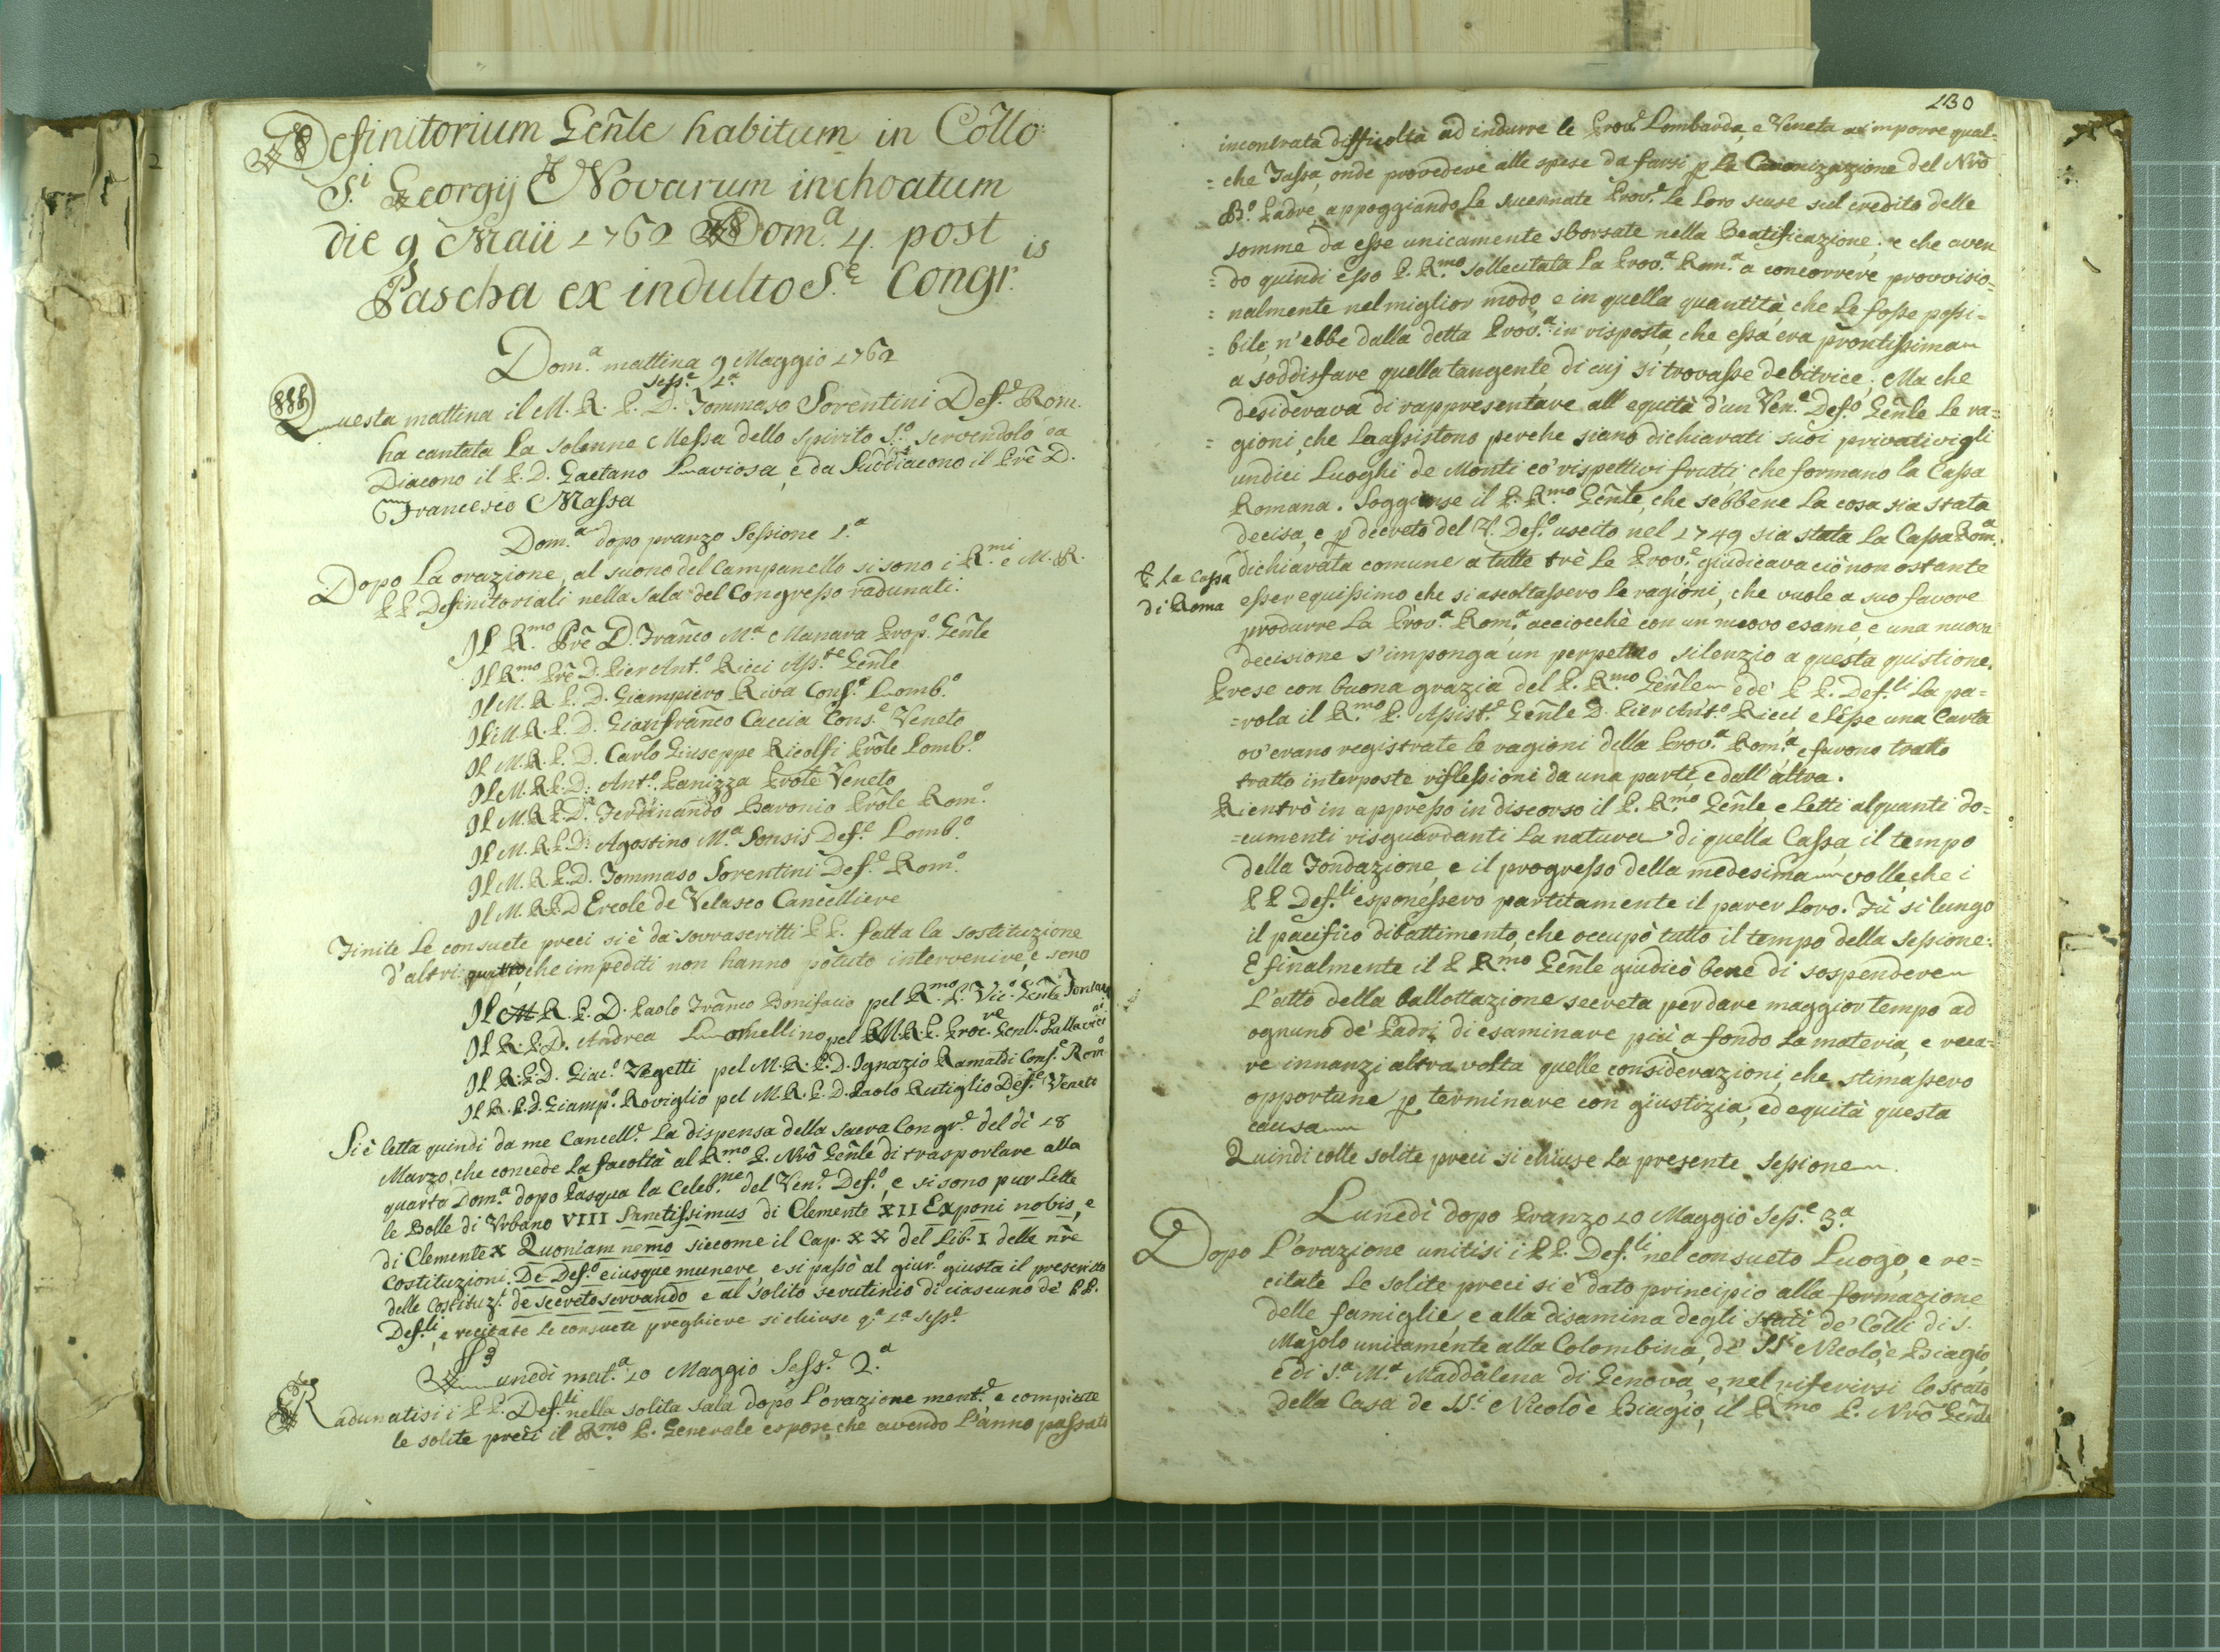 Definitorium Gen̄le habitum in Collo
S.i Georgij Novarum inchoatum
die 9 Maii 1762 Dom.a 4. post
Pascha ex indulto S.e Congr.is
Dom.a mattina 9 Maggio 1762
Sess.e 1.a
Questa mattina il M. R. P. D. Tommaso Sorentini Def.e Rom.
ha cantata la solenne Messa dello Spirito S.o servendolo da
Diacono il P. D. Gaetano Laviosa, e da Suddiacono il Prē D.
Francesco Massa
Dom.a dopo pranzo Sessione 1.a
Dopo la orazione, al suono del Campanello si sono i R.mi e M. R.
P P. Definitoriali nella Sala del Congresso radunati.
Il R.mo Prē D. Fran̄co M.a Manara Prop.o Gen̄le
Il R.mo Prē D. Pier Ant.o Ricci Ass.te Gen̄le
Il M. R. P. D. Giampiero Riva Cons.e Lomb.o
Il M. R. P. D. Gianfran̄co Caccia Cons.e Veneto
Il M. R. P. D. Carlo Giuseppe Ricolfi Prōle Lomb.o
Il M. R. P. D. Ant.o Panizza Prōle Veneto
Il M. R. P. D. Ferdinando Baronio Prōle Rom.o
Il M. R. P. D. Agostino M.a Sonsis Def.e Lomb.o
Il M. R. P. D. Tommaso Sorentini Def.e Rom.o
Il M. R. P. D Ercole de Velasco Cancelliere
Finite le consuete preci si è da sovrascritti P P. fatta la sostituzione
d'altri quattro, che impediti non hanno potuto intervenire, e sono
Il M. R. P. D. Paolo Fran̄co Bonifacio pel R.mo P. Vic.o Gen̄le Fontana
Il R. P. D. Andrea Lomellino pel M. R. P. Proc.re Gen̄l.e Pallavicini
Il R. P. D. Giac.o Vegetti pel M. R. P. D. Ignazio Ramaldi Cons.e Rom.o
Il R. P. D. Giamp.o Roviglio pel M. R. P. D. Paolo Rutiglio Def.e Veneto
Si è letta quindi da me Cancell.e la dispensa della Sacra Congr.e del dì 18
Marzo, che concede la facoltà al R.mo P. Nrō Gen̄le di trasportare alla
quarta Dom.a dopo Pasqua la Celeb.ne del Ven.e Def.o, e si sono pur lette
le Bolle di Vrbano VIII Sanctissimus di Clemente XII Exponi nobis, e
di Clemente X Quoniam nemo siccome il Cap. XX del Lib. I delle nrē
Costituzioni. De Def.o eiusque munere e si passò al giur.o giusta il prescritto
delle Costituz.i de secreto servando e al solito scrutinio di ciascuno de' PP.
Def.li, e recitate le consuete preghiere si chiuse q.a 1.a Sess.e
Lunedì mat.a 10 Maggio Sess.e 2.a
Radunatisi i P P. Def.li nella solita sala dopo l'orazione ment.e, e compiute
le solite preci il R.mo P. Generale espose, che avendo l'anno passato
130
incontrata difficoltà ad indurre le Prov.e Lombarda, e Veneta a imporre qual-
= che Tassa, onde provedere alle spese da farsi p la Canonizazione del Nrō
B.o Padre, appoggiando le sucennate Prov.e le loro scuse sul credito delle
somme da esse unicamente sborsate nella Beatificazione; e che aven
= do quindi esso P. R.mo sollecitata la Prov.a Rom.a a concorrere provvisio=
= nalmente nel miglior modo, e in quella quantità, che le fosse possi=
= bile, n'ebbe dalla detta Prov.a in risposta, che essa era prontissima
a soddisfare quella tangente, di cuj si trovasse debitrice; Ma che
desiderava di rappresentare all'equità d'un Ven.e Def.o Gen̄le le ra=
= gioni, che la assistono perche siano dichiarati suoi privativi gli
undici Luoghi de Monti co' rispettivi frutti, che formano la Cassa
Romana. Soggiunse il P. R.mo Gen̄le, che sebbene la cosa sia stata
decisa, e p decreto del V. Def.o uscito nel 1749 sia stata la Cassa Rom.a
dichiarata comune a tutte trè le Prov.e, giudicava ciò non ostante
P La Cassa
di Roma
esser equissimo che si ascoltassero le ragioni, che vuole a suo favore
produrre la Prov.a Rom.a, acciocchè con un nuovo esame, e una nuova
decisione s'imponga un perpetuo silenzio a questa quistione.
Prese con buona grazia del P. R.mo Gen̄le e de' P P. Def.li la pa=
= rola il R.mo P. Assist.e Gen̄le D. Pier Ant.o Ricci, e lesse una Carta
ov'erano registrate le ragioni della Prov.a Rom.a, e furono tratto
tratto interposte riflessioni da una parte, e dall'altra.
Rientrò in appresso in discorso il P. R.mo Gen̄le, e letti alquanti do=
= cumenti risguardanti la natura di quella Cassa, il tempo
della Fondazione, e il progresso della medesima volle, che i
P P Def.li esponessero partitamente il parer loro. Fù sì lungo
il pacifico dibattimento, che occupò tutto il tempo della Sessione:
E finalmente il P R.mo Gen̄le giudicò bene di sospendere
l'atto della ballottazione secreta per dare maggior tempo ad
ognuno de' Padri di esaminare più a fondo la materia, e reca=
re innanzi altra volta quelle considerazioni, che stimassero
opportune p terminare con giustizia, ed equità questa
causa
Quindi colle solite preci si chiuse la presente Sessione.
Lunedì dopo Pranzo 10 Maggio Sess.e 3.a
Dopo l'orazione unitisi i P P. Def.li nel consueto Luogo, e re=
citate le solite preci si è dato principio alla formazione
delle famiglie, e alla disamina degli stati de' Colli di S.
Majolo unitamente alla Colombina, de' SS.i Nicolò, e Biagio
e di S.a M.a Maddalena di Genova, e nel riferirsi lo stato
della Casa de SS.i Nicolò e Biagio, il R.mo P. Nrō Gen̄le